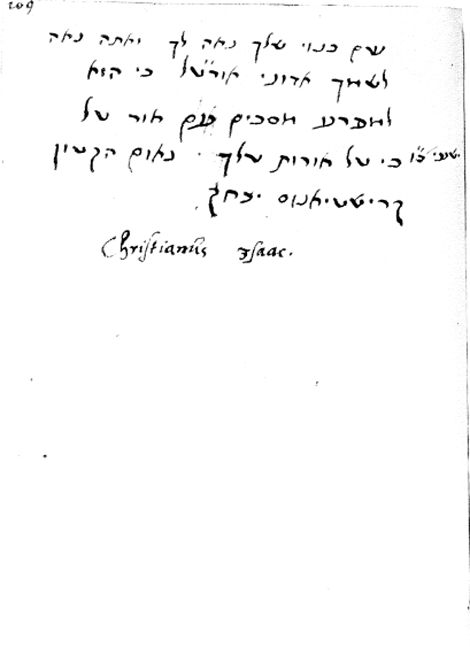 209
שם כנוי שלך נאה לך ואתה נאה
לשמך אדוני אורש״ל כי הוא
למפרע מסכים עם אור של
ישעי׳ כ״ו כי טל אורות טלך · נאום הקטון
קריסטיאנוס יצחק
Christianus Isaac.